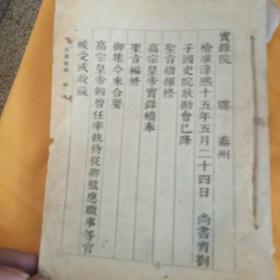 實錄院　牒　泰州
檢准淳熙十五年五月二十四日　尚書省劄
子國史院狀勘會已降
聖旨指揮修
高宗皇帝實錄續奉
聖旨編修
御集今來合要
高宗皇帝朝曾任宰執侍從卿監應職事等官
被受或收藏